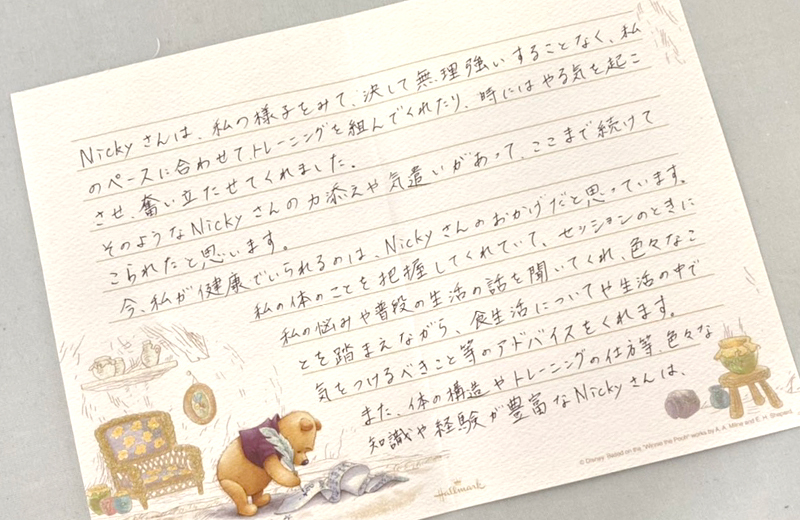 Nickyさんは、私の様子をみて、決して無理強いすることなく、私
のペースに合わせて、トレーニングを組んでくれたり、時にはやる気を起こ
させ、奮い立たせてくれました。
そのようなNickyさんの力添えや気遣いがあって、ここまで続けて
こられたと思います。
今、私が健康でいられるのは、Nickyさんのおかげだと思っています。
私の体のことを把握してくれていて、セッションのときに
私の悩みや普段の生活の話を聞いてくれ、色々なこ
とを踏まえながら、食生活についてや生活の中で
気をつけるべきこと等のアドバイスをくれます。
また、体の構造やトレーニングの仕方等、色々な
知識や経験が豊富なNickyさんは、
Hallmark
© Disney. Based on the "Winnie the Pooh" works by A. A. Milne and E. H. Shepard.